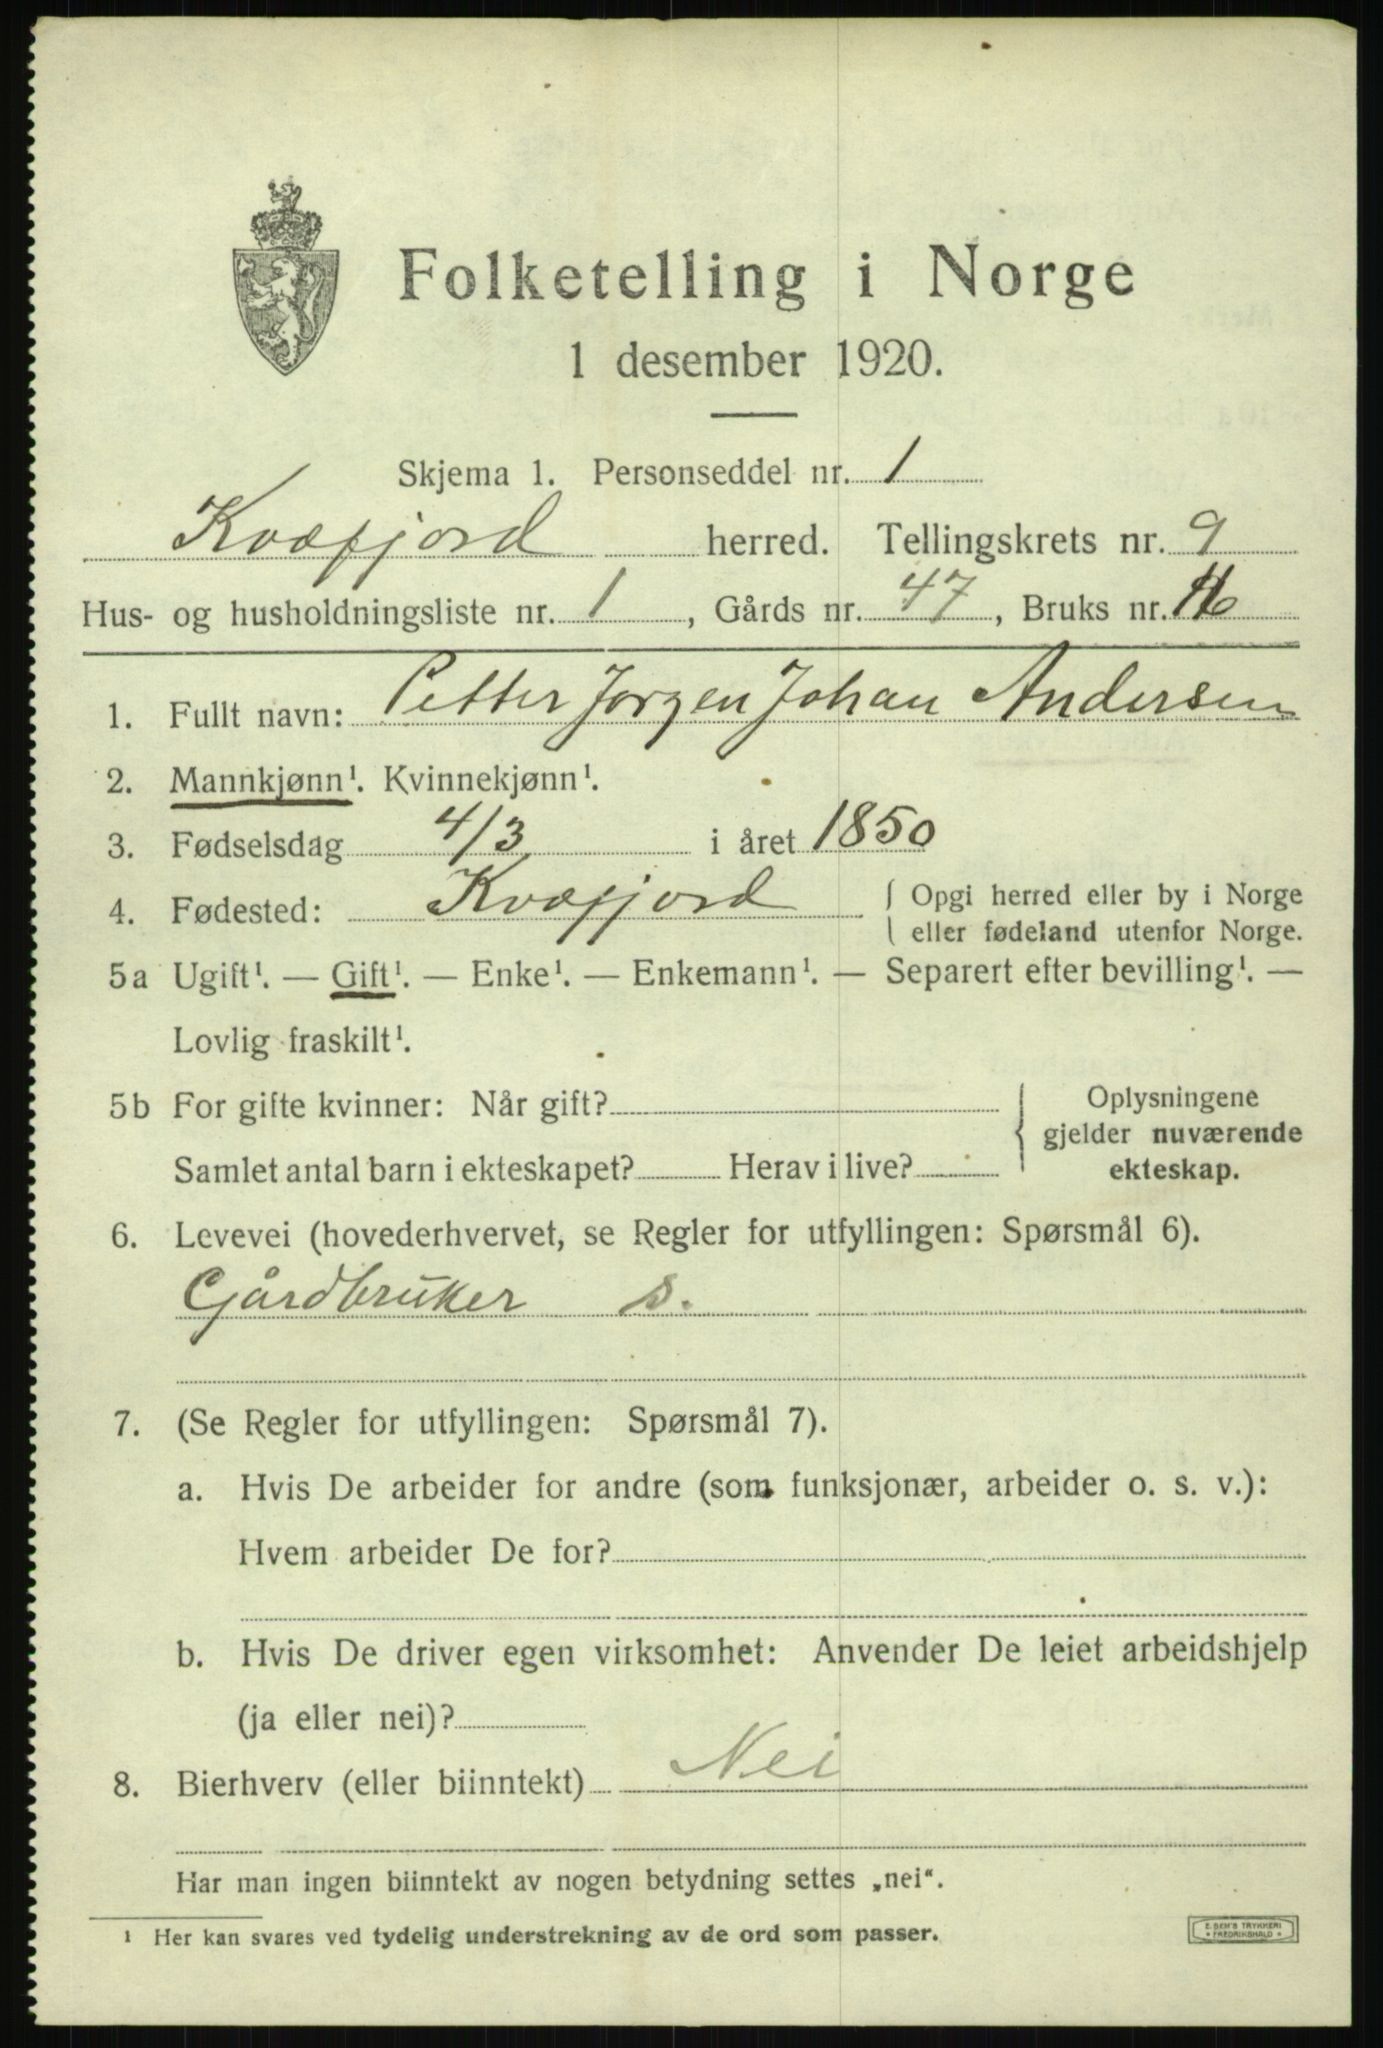 Folketelling i Norge
1 desember 1920.
Skjema 1. Personseddel nr. 1
Kvæfjord herred. Tellingskrets nr. 9
Hus- og husholdningsliste nr. 1, Gårds nr. 47, Bruks nr.
1. Fullt navn: Petter Jørgen Johan Andersen
2. Mannkjønn¹. Kvinnekjønn¹.
3. Fødselsdag 4/3 i året 1850
4. Fødested: Kvæfjord { Opgi herred eller by i Norge
eller fødeland utenfor Norge.
5a Ugift¹. — Gift¹. — Enke¹. — Enkemann¹. — Separert efter bevilling¹. —
Lovlig fraskilt¹.
5b For gifte kvinner: Når gift? { Oplysningene
gjelder nuværende
Samlet antal barn i ekteskapet? Herav i live? ekteskap.
6. Levevei (hovederhvervet, se Regler for utfyllingen: Spørsmål 6).
Gårdbruker s.
7. (Se Regler for utfyllingen: Spørsmål 7).
a. Hvis De arbeider for andre (som funksjonær, arbeider o. s. v.):
Hvem arbeider De for?
b. Hvis De driver egen virksomhet: Anvender De leiet arbeidshjelp
(ja eller nei)?
8. Bierhverv (eller biinntekt) Nei
Har man ingen biinntekt av nogen betydning settes „nei“.
¹ Her kan svares ved tydelig understrekning av de ord som passer.
E. SEM'S TRYKKERI
* FREDRIKSHALD *